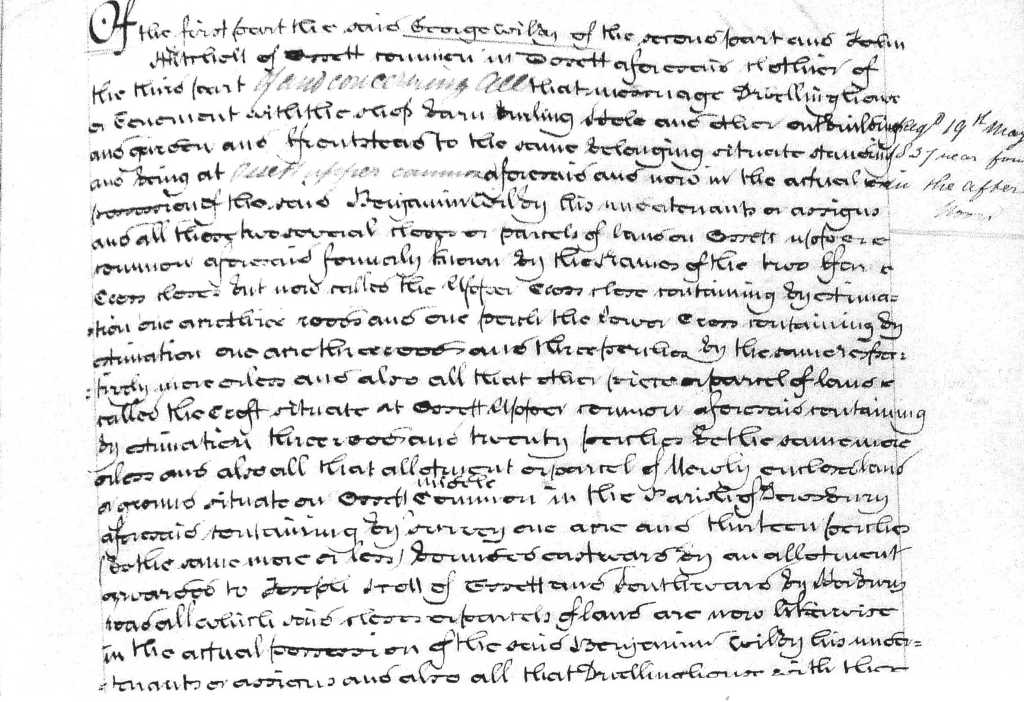 Of the first part the said George Wilby of the second part and John
Mitchell of Ossett common in Dossett aforesaid clothier of
the third part Of and concerning All that messuage Dwellinghouse
or Tenement with the shop barn burling stole and other outbuildings
and garden and ffrontstead to the same belonging situate standing
and being at Ossett upper common aforesaid and now in the actual
possession of the said Benjamin Wilby his undertenants or assigns
and all those two several closes or parcels of land on Ossett upper
common aforesaid formerly known by the names of the two
Cross closes but now called the Upper Cross close containing by estima-
-tion one acre three roods and one perch the Lower Cross containing by
estimation one acre three roods and three perches by the same respec-
-tively more or less and also all that other piece or parcel of land
called the Croft situate at Ossett Upper common aforesaid containing
by estimation three roods and twenty perches be the same more
or less and also all that allotment or parcel of Newly enclosed land
or ground situate on Ossett middle Common in the Parish of Dewsbury
aforesaid containing by survey one acre and thirteen perches
(be the same more or less) bounded eastward by an allotment
awarded to Joseph Scoll of Ossett and Southward by Horbury
road all which said closes or parcels of land are now likewise
in the actual possession of the said Benjamin Wilby his under-
-tenants or assigns and also all that Dwellinghouse with the
Regd 19th May
1837 near four
in the after
noon